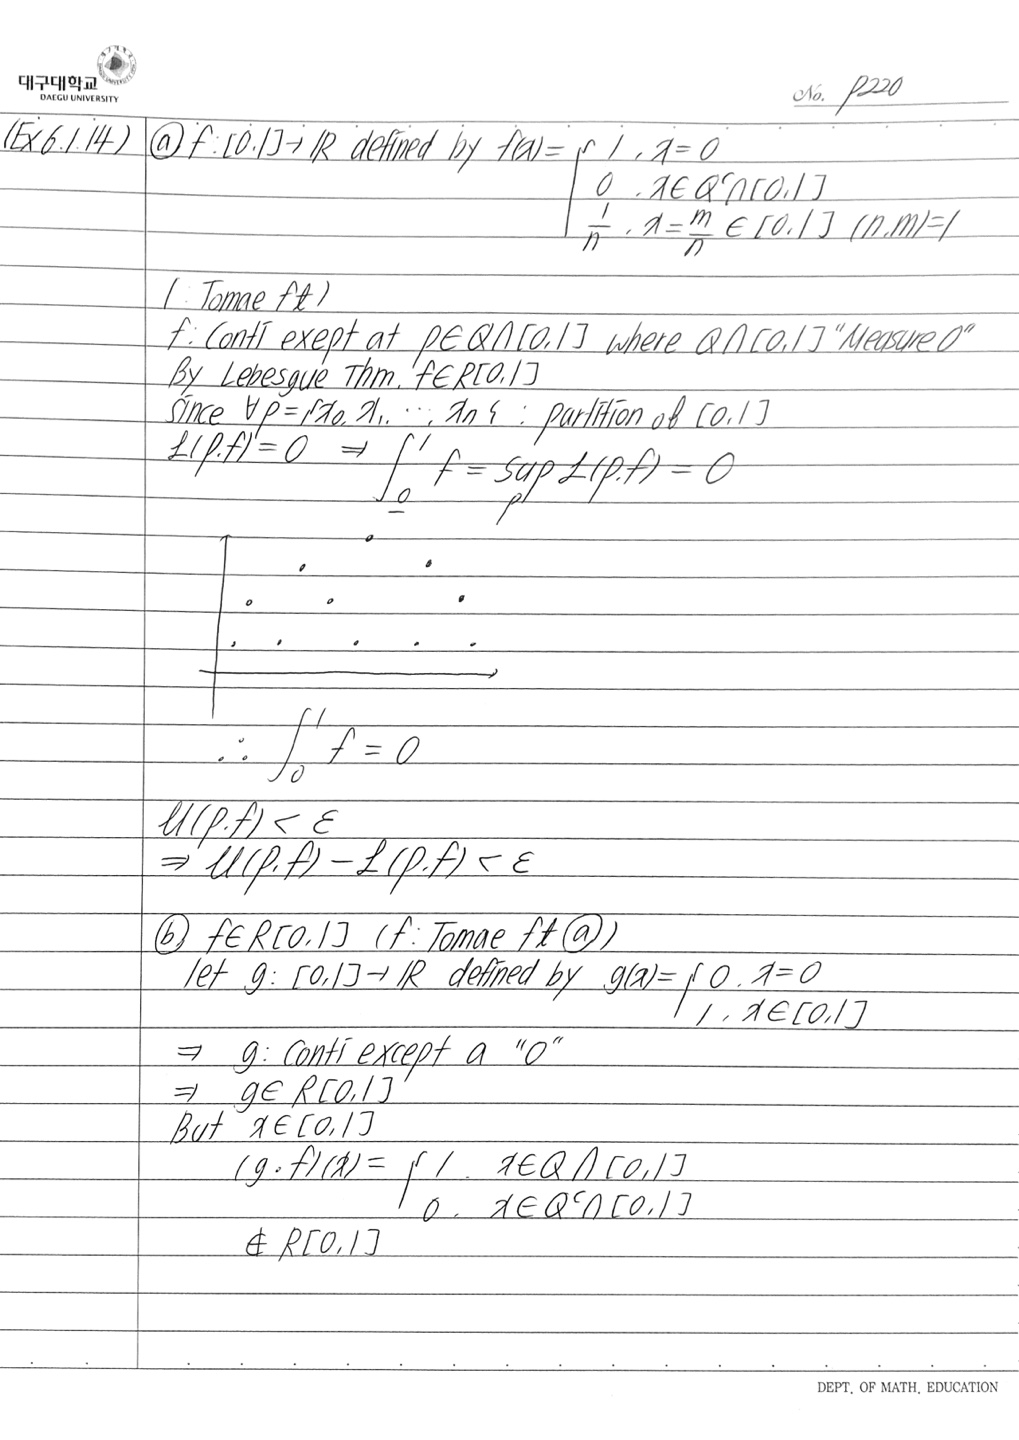 대구대학교
DAEGU UNIVERSITY
No. P220
(Ex 6.1.14) ⓐ f: [0,1] → ℝ defined by f(x) = { 1, x=0
0, x∈Qᶜ∩[0,1]
1/n, x = m/n ∈ [0,1] (n,m)=1
(: Tomae ft)
f: Conti exept at p∈Q∩[0,1] where Q∩[0,1] "Measure 0"
By Lebesgue Thm. f∈R[0,1]
Since ∀p={x₀, x₁, ⋯, xₙ} : partition of [0,1]
L(p.f)=0 ⇒ ∫₀¹ f = sup_p L(p.f) = 0
∴ ∫₀¹ f = 0
U(p.f) < ε
⇒ U(p.f) - L(p.f) < ε
ⓑ f∈R[0,1] (f: Tomae ft ⓐ)
let g: [0,1] → ℝ defined by g(x) = { 0, x=0
1, x∈[0,1]
⇒ g: Conti except a "0"
⇒ g∈R[0,1]
But x∈[0,1]
(g∘f)(x) = { 1, x∈Q∩[0,1]
0, x∈Qᶜ∩[0,1]
∉ R[0,1]
DEPT. OF MATH. EDUCATION